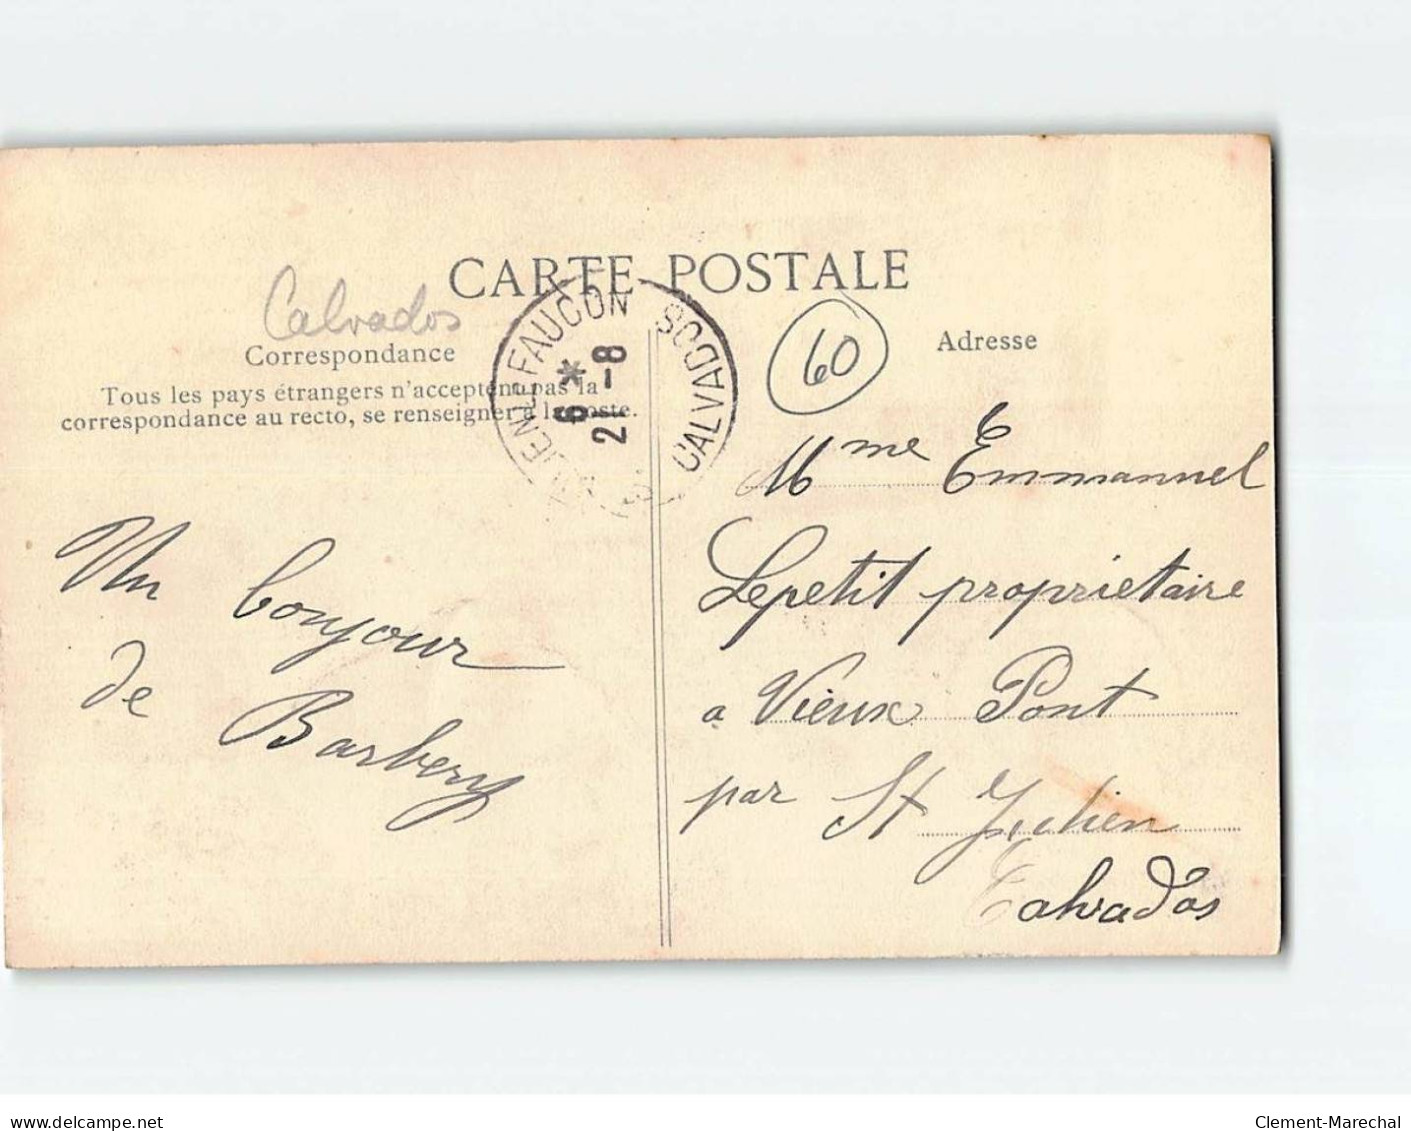 CARTE POSTALE
Calvados
Correspondance
Tous les pays étrangers n'acceptent pas la
correspondance au recto, se renseigner à la poste.
LE-FAUCON
CALVADOS
6 *
21 -8
60
Adresse
Un bonjour
de Barbery
Mme Emmanuel
Lepetit propriétaire
a Vieux Pont
par St Julien
Calvados
www.delcampe.net
Clement-Marechal